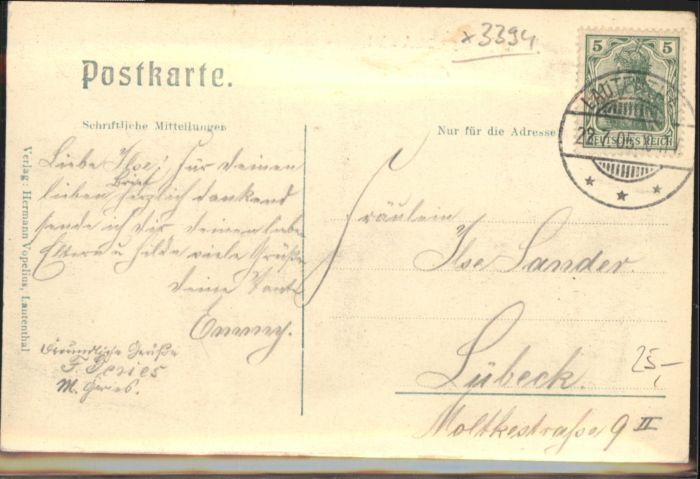 x3394
Postkarte.
Schriftliche Mitteilungen
Nur für die Adresse
5 5
DEUTSCHES REICH
LAUTENTHAL
22.7.05.
Liebe Ilse! Für deinen
lieben Brief herzlich dankend
sende ich dir, deinen lieben
Eltern u Hilde viele Grüße
deine Tante
Emmy.
Freundliche Grüße
F. Gries
M. Gries.
Fräulein
Ilse Sander.
Lübeck.
Moltkestraße 9 II
25,-
Verlag: Hermann Vopelius, Lautenthal